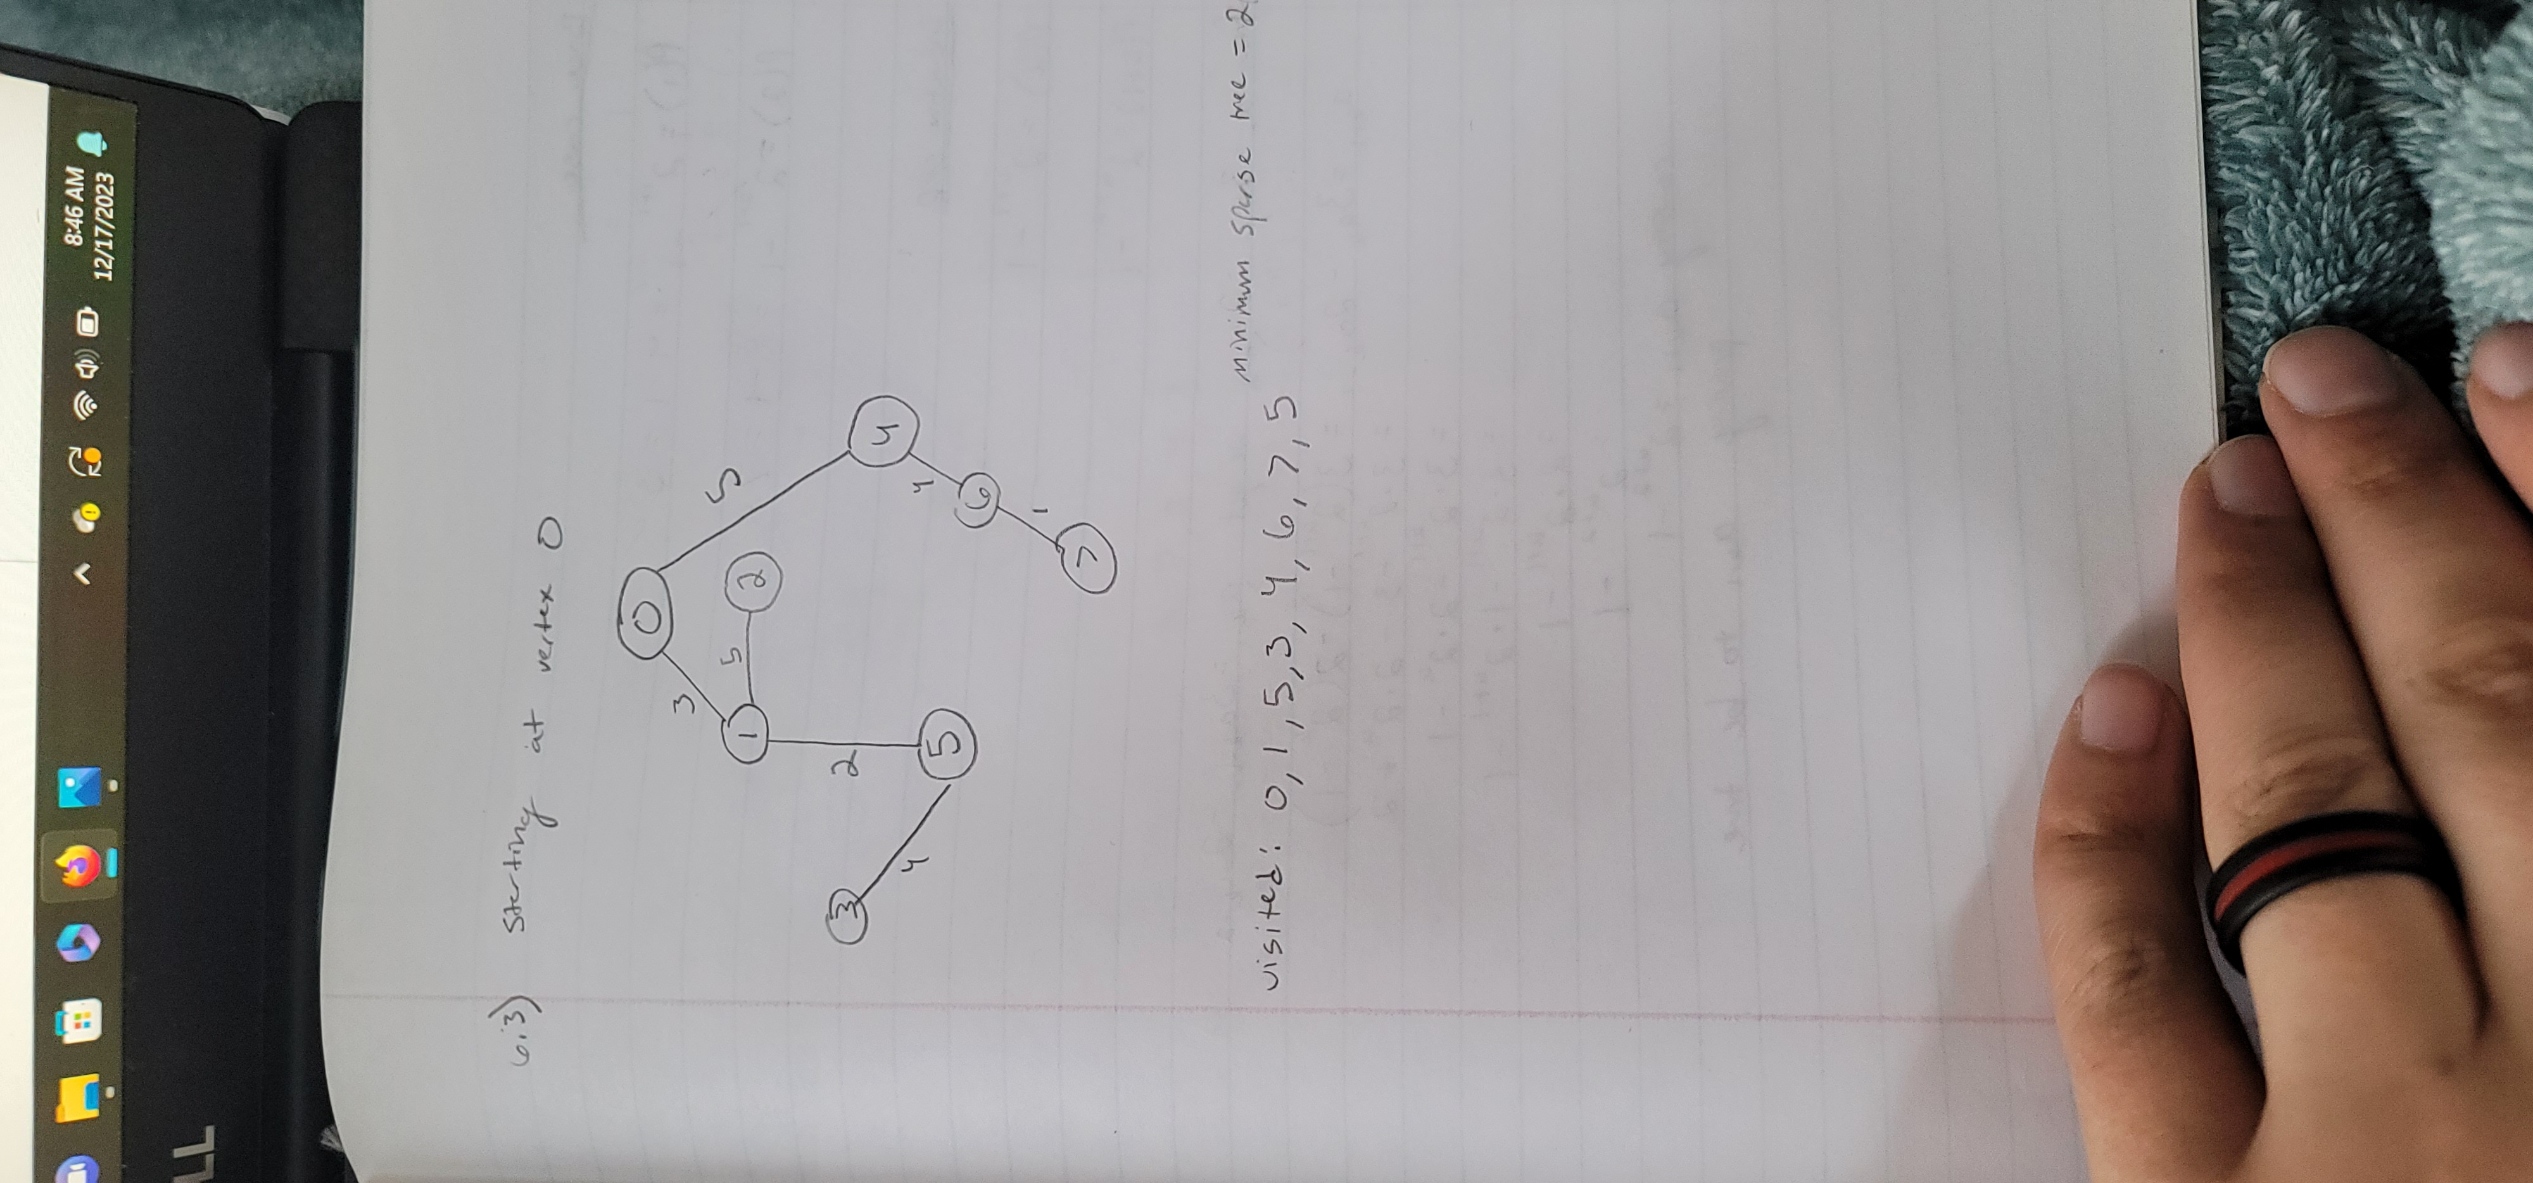 8:46 AM
12/17/2023
LL
6.3) Starting at vertex 0
0
3
5
1
5
2
3
2
4
4
5
4
6
1
7
minimum sparse tree = 2
visited: 0, 1, 5, 3, 4, 6, 7, 5